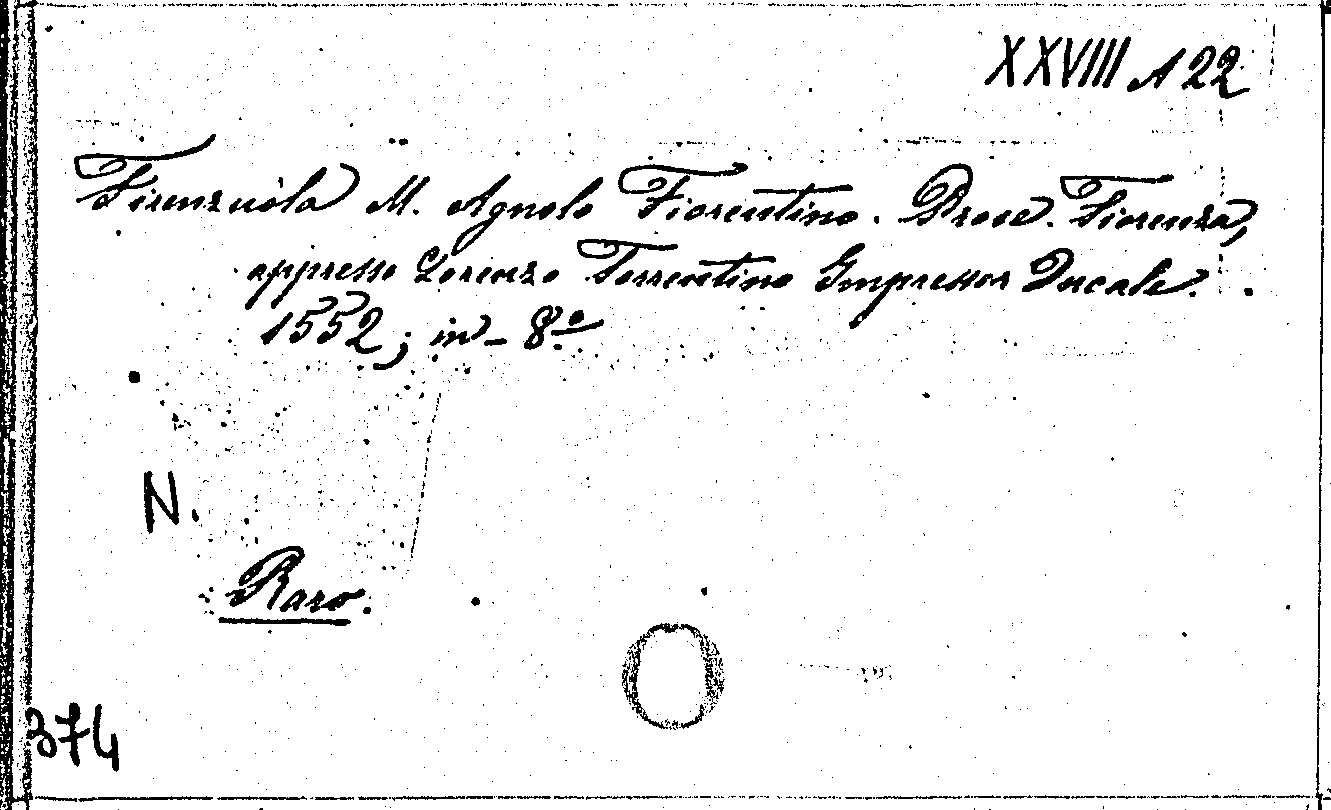 XXVIII A 22
Firenzuola M. Agnolo Fiorentino. Prose. Fiorenza,
appresso Lorenzo Torrentino Impressor Ducale.
1552; in-8º
N.
Raro.
374